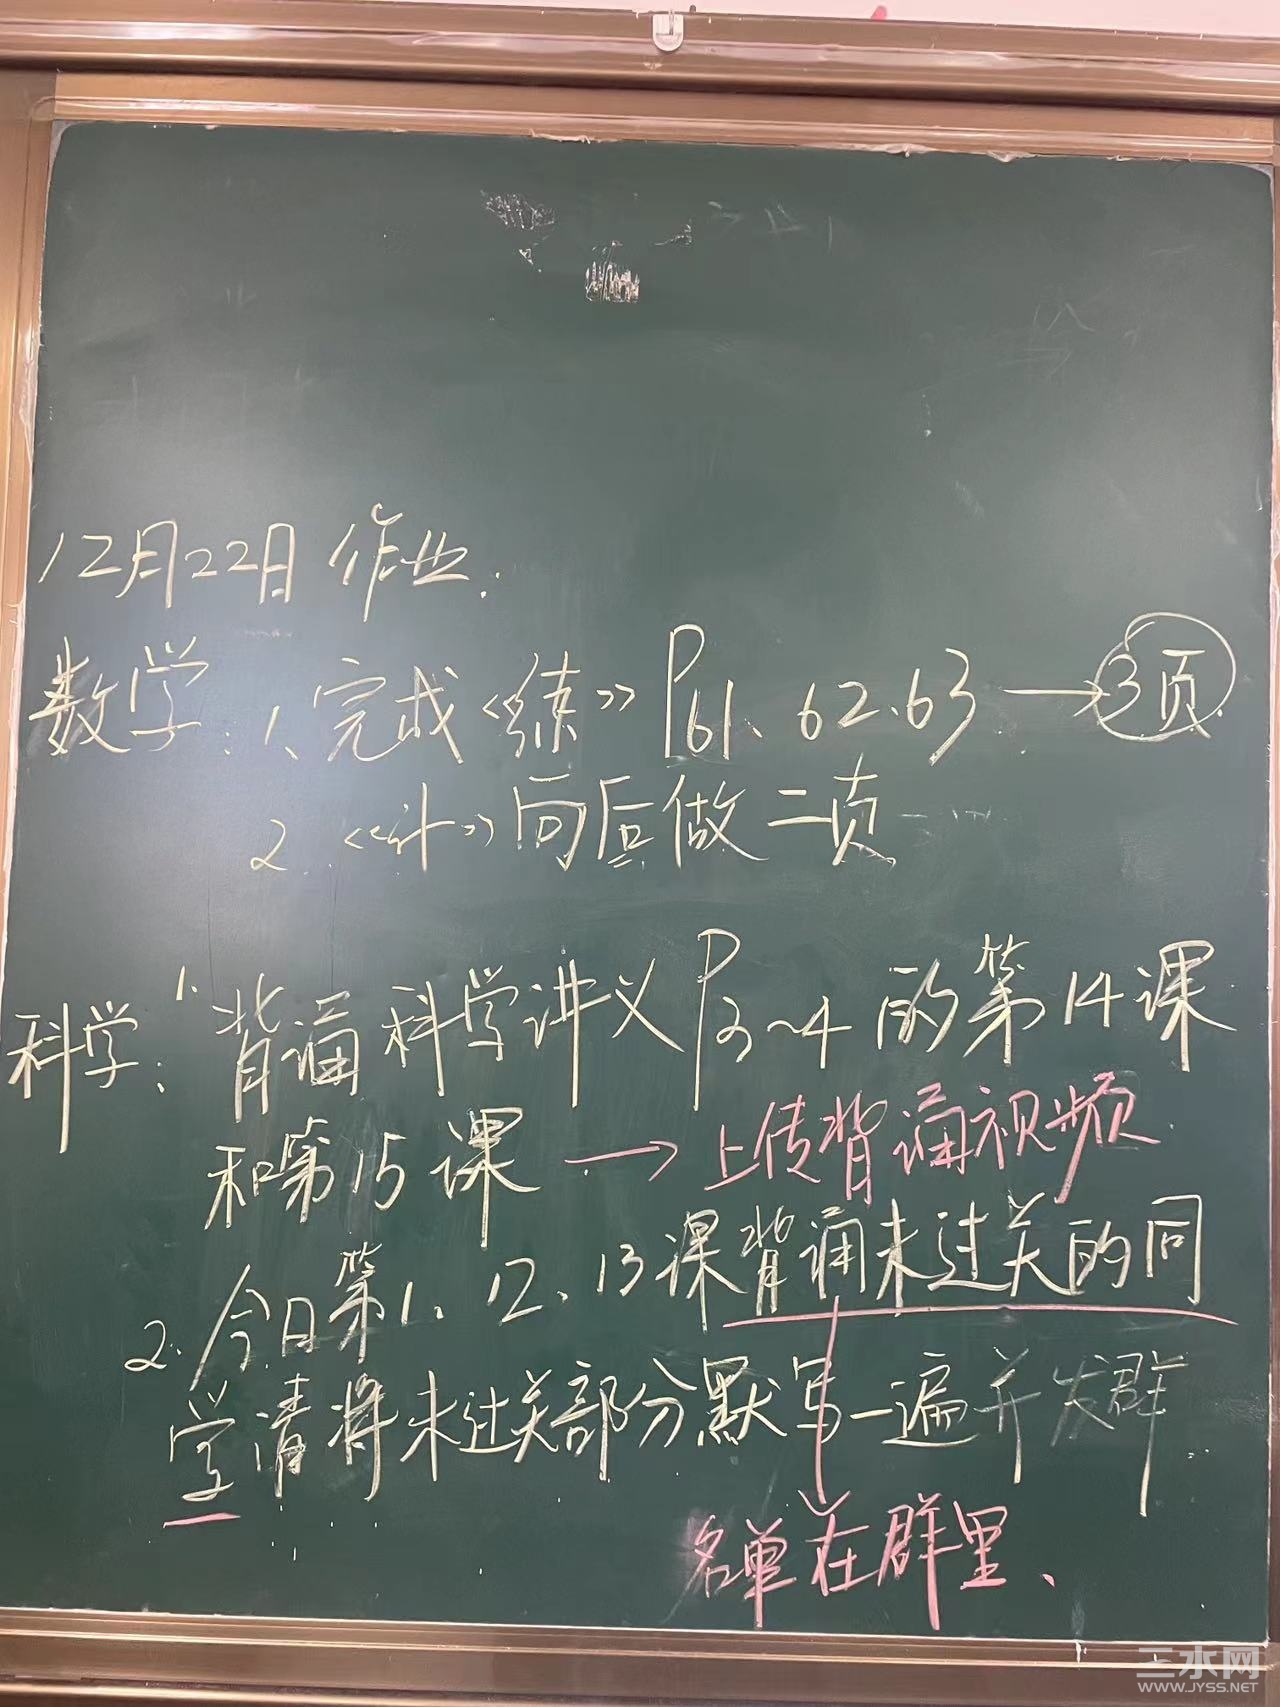 12月22日作业:
数学:1、完成《练》P61、62、63→3页
2.《计》向后做二页
科学:1.背诵科学讲义P3~4的第14课
和第15课→上传背诵视频
2.今日第1、12、13课背诵未过关的同
学请将未过关部分默写一遍并发群
名单在群里、
三水网
WWW.JYSS.NET